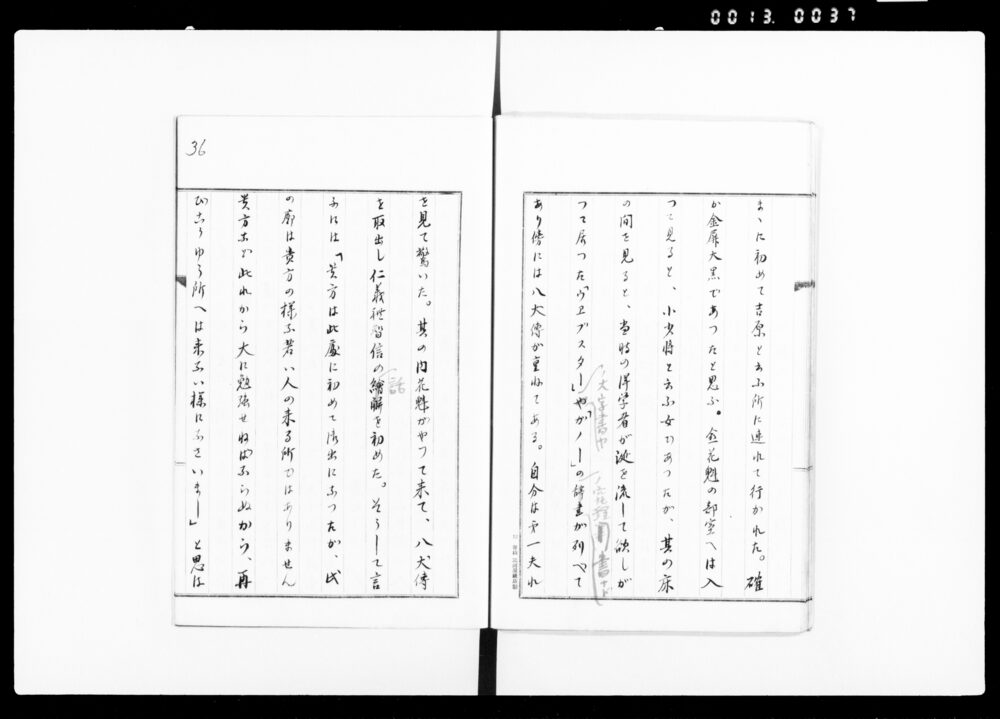 0013.0037
まゝに初めて吉原と云ふ所に連れて行かれた。確
か金屏大黒であつたと思ふ。全花魁の部室へは入
つて見ると、小少将と云ふ女であつたが、其の床
の間を見ると、当時の洋学者が涎を流して欲しが
つて居つた「ウエブスター」や「ガノー」の辞書が列べて
ノ大字書ヤ
ノ究程書ナド
あり傍には八犬傳が重ねてある。自分は第一夫れ
36
を見て驚いた。其の内花魁がやつて来て、八犬傳
を取出し仁義礼智信の繪解を初めた。そうして言
話
ふには「貴方は此處に初めて御出になつたが、此
の廓は貴方の様な若い人の来る所ではありません
貴方などは此れから大に勉強せねばならぬから、再
びこうゆう所へは来ない様になさいまし」と思は